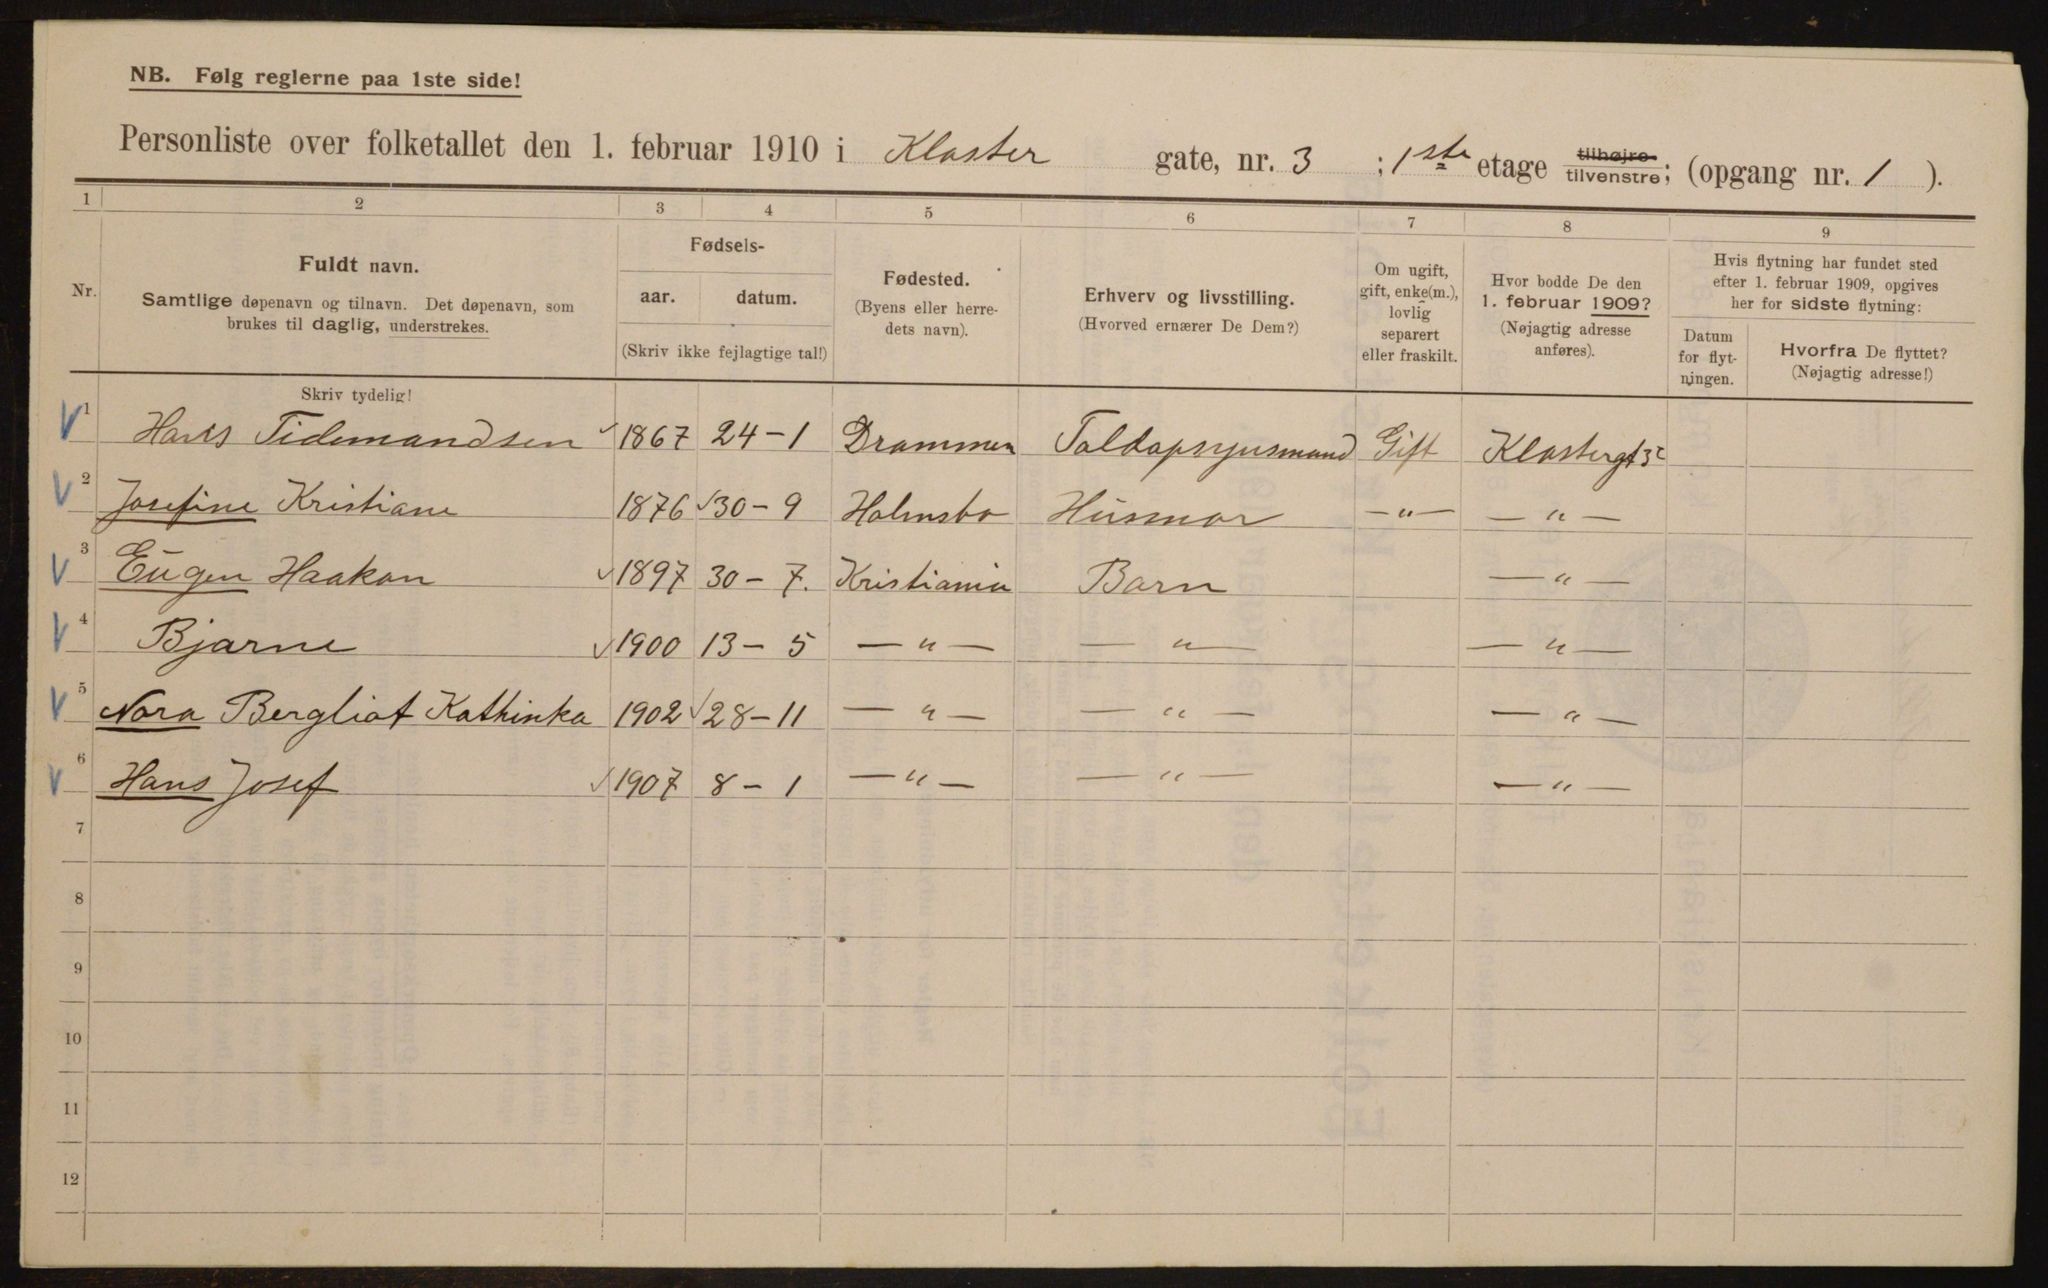 NB. Følg reglerne paa 1ste side!
Personliste over folketallet den 1. februar 1910 i Kloster gate, nr. 3 ; 1ste etage tilhøjre tilvenstre; (opgang nr. 1 ).
1 2 3 4 5 6 7 8 9
Nr.
Fuldt navn.
Samtlige døpenavn og tilnavn. Det døpenavn, som
brukes til daglig, understrekes.
Skriv tydelig!
Fødsels-
aar. datum.
(Skriv ikke fejlagtige tal!)
Fødested.
(Byens eller herre-
dets navn).
Erhverv og livsstilling.
(Hvorved ernærer De Dem?)
Om ugift,
gift, enke(m.),
lovlig
separert
eller fraskilt.
Hvor bodde De den
1. februar 1909?
(Nøjagtig adresse
anføres).
Hvis flytning har fundet sted
efter 1. februar 1909, opgives
her for sidste flytning:
Datum
for flyt-
ningen.
Hvorfra De flyttet?
(Nøjagtig adresse!)
1 Hans Tidemandsen 1867 24-1 Drammen Toldopsynsmand Gift Klostergt 3
2 Josefine Kristiane 1876 30-9 Holmsbo Husmor -„- -„-
3 Eugen Haakon 1897 30-7. Kristiania Barn -„-
4 Bjarne 1900 13-5 -„- -„- -„-
5 Nora Bergliot Kathinka 1902 28-11 -„- -„- -„-
6 Hans Josef 1907 8-1 -„- -„- -„-
7
8
9
10
11
12